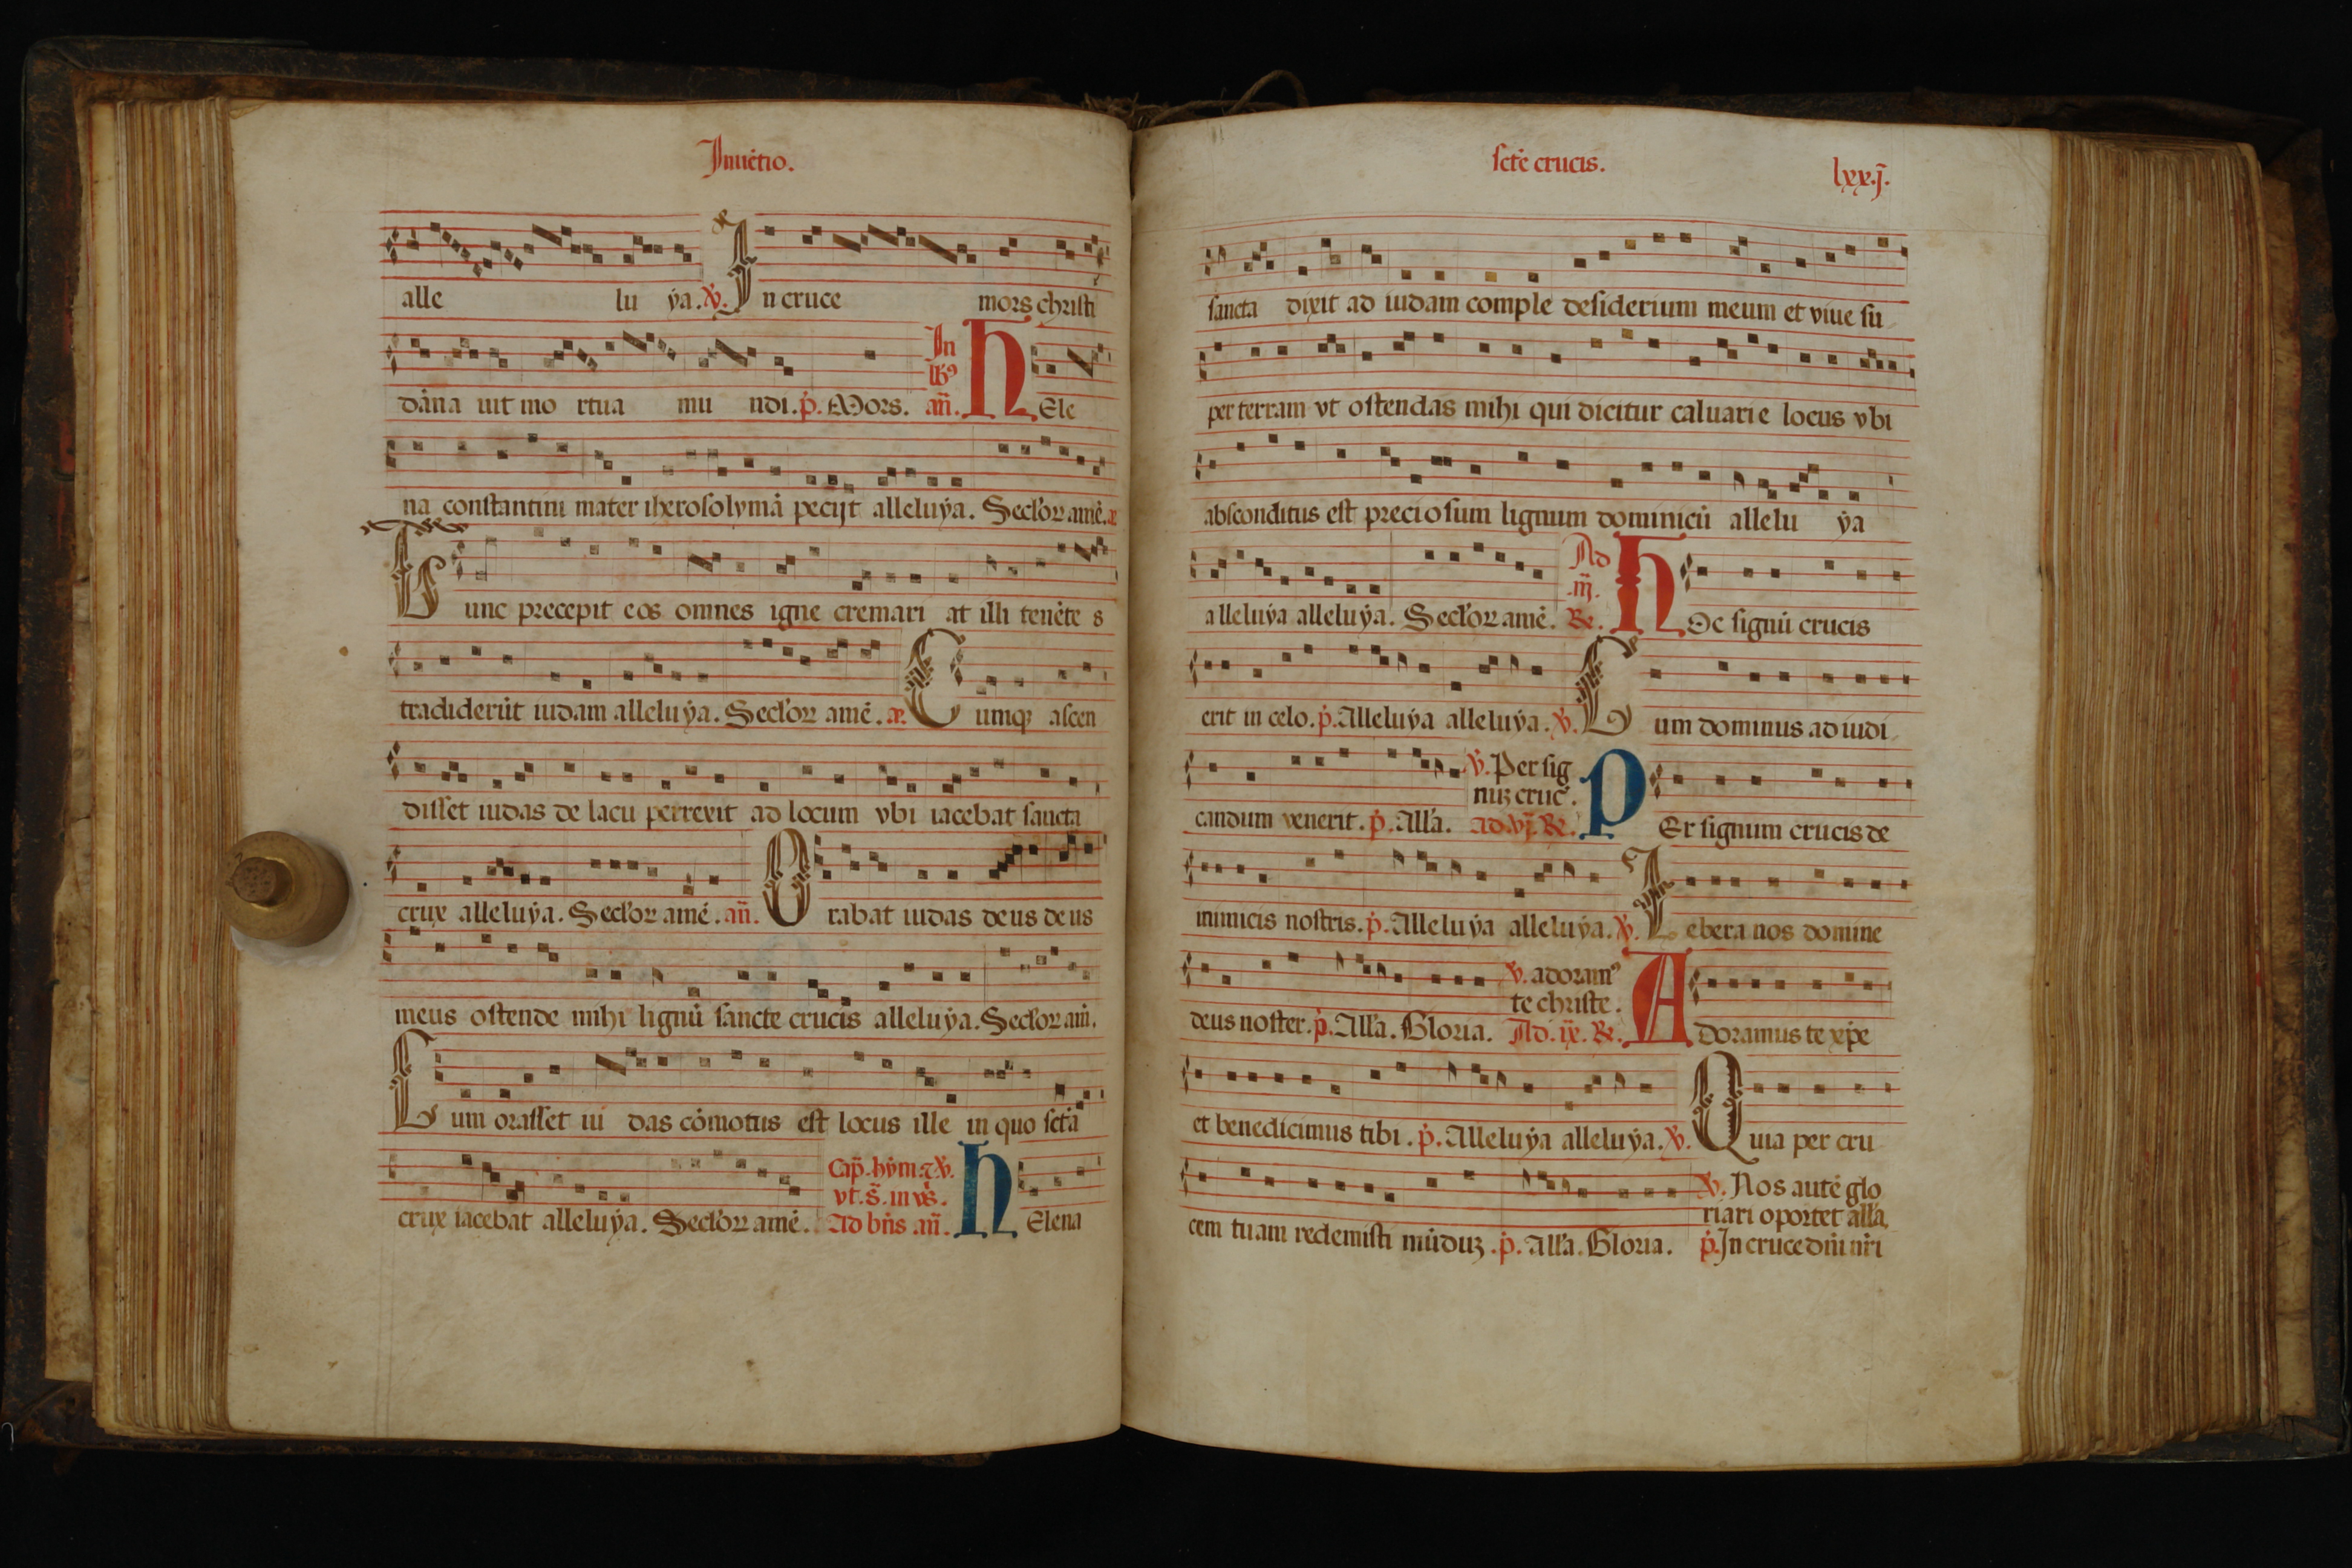 Inuẽtio.
alle lu ÿa. ℣. In cruce mors christi
dãna uit mo rtua mu ndi. p̃. Mors. In lb᷒ añ. HEle
na constantini mater iherosolymã pecijt alleluÿa. Seclor amẽ. æ
Tunc precepit eos omnes igne cremari at illi tenẽte s
tradiderũt iudam alleluÿa. Seclor amẽ. æ. Cumqꝫ ascen
disset iudas de lacu perrexit ad locum vbi iacebat sancta
crux alleluÿa. Seclor amẽ. añ. Orabat iudas deus deus
meus ostende mihi lignũ sancte crucis alleluÿa. Seclor am̃.
Cum orasset iu das cõmotus est locus ille in quo sctã
crux iacebat alleluÿa. Seclor amẽ. Cap̃. hým. ⁊ ℣. vt. s̃. in vs̃. Ad bñs añ. HElena
sctẽ crucis.
lxx.j̃.
sancta dixit ad iudam comple desiderium meum et viue su
per terram vt ostendas mihi qui dicitur caluarie locus vbi
absconditus est preciosum lignum dominicũ allelu ÿa
alleluÿa alleluÿa. Seclor amẽ. Ad .iij̃. Re. HOc signũ crucis
erit in celo. p̃. Alleluÿa alleluÿa. ℣. Cum dominus ad iudi
candum venerit. p̃. All'a. ℣. Per sig nuꝫ cruc̃. Ad .vj̃. Re. PEr signum crucis de
inimicis nostris. p̃. Alleluÿa alleluÿa. ℣. Lebera nos domine
deus noster. p̃. All'a. Gloria. ℣. adoram᷒ te christe. Ad. ix̃. Re. ADoramus te xp̃e
et benedicimus tibi. p̃. Alleluÿa alleluÿa. ℣. Quia per cru
cem tuam redemisti mũduꝫ. p̃. All'a. Gloria. ℣. Nos autẽ glo
riari oportet all'a.
p̃. In cruce dñi nr̃i